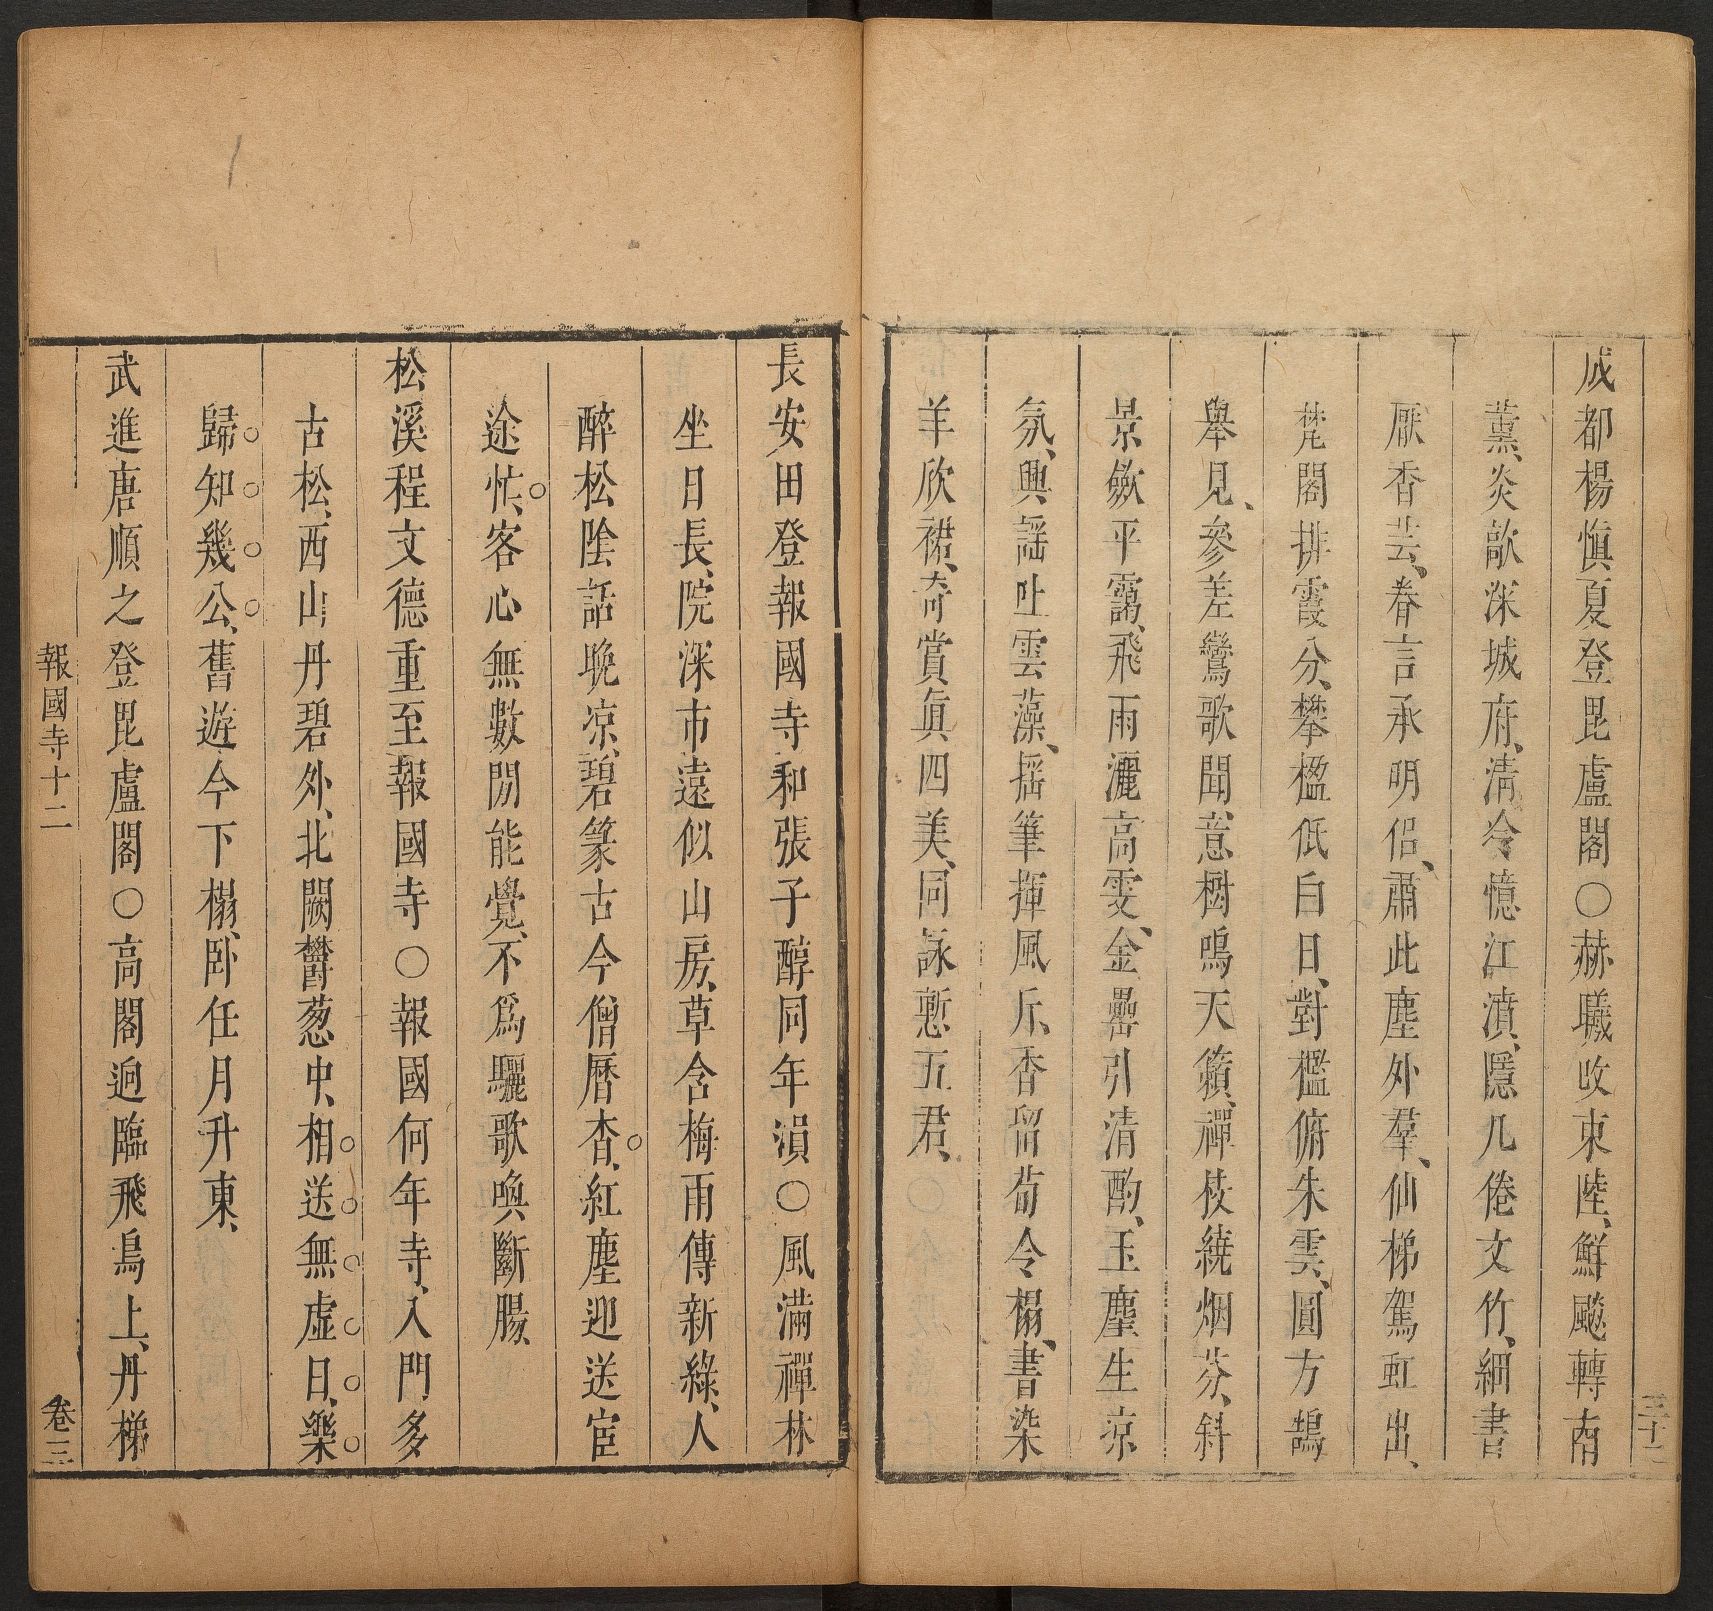 成都楊愼夏登毘盧閣○赫曦收東陸、鮮飈轉南
薰、炎歊深城府、清冷憶江濆、隱几倦文竹、細書
厭香芸、眷言承明侶、肅此塵外羣、仙梯駕虹出、
梵閣排霞分、攀楹低白日、對檻俯朱雲、圓方鵠
舉見、參差鸞歌聞、意樹鳴天籟、禪枝繞烟芬、斜
景斂平靄、飛雨灑高雯、金罍引清酌、玉麈生凉
氛、興謡吐雲藻、揺筆揮風斤、香留荀令榻、書染
羊欣裙、奇賞眞四美、同詠慙五君、
長安田登報國寺和張子醇同年溳○風滿禪林
坐日長、院深市遠似山房、草含梅雨傳新綠、人
醉松陰話晚凉、碧篆古今僧曆杳、紅塵迎送宦
途忙、客心無數閒能覺、不爲驪歌喚斷腸、
松溪程文德重至報國寺○報國何年寺、入門多
古松、西山丹碧外、北闕欝葱中、相送無虛日、樂
歸知幾公、舊遊今下榻、卧任月升東、
武進唐順之登毘盧閣○高閣逈臨飛鳥上、丹梯
報國寺十二
卷三